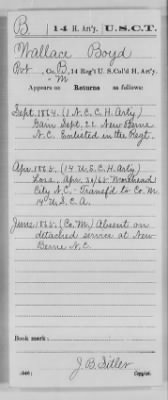 B 14 H. Art'y. U.S.C.T.
Wallace Boyd
Pvt, Co. B, 14 Reg't U. S. Col'd H. Art'y.
" M
Appears on Returns as follows:
Sept. 1864. (1 N.C.C.H. Arty)
Gain Sept. 21 New Berne
N.C. Enlisted in the Regt.
Apr. 1865. (14 U.S.C.H. Arty)
Loss. Apr. 30/65 Morehead
City N.C. - Transf'd to Co. M
14" U.S.C.A.
June 1865. (Co. M.) Absent on
detached service at New
Berne N.C.
Book mark:
(546) J. B. Tiller
Copyist.